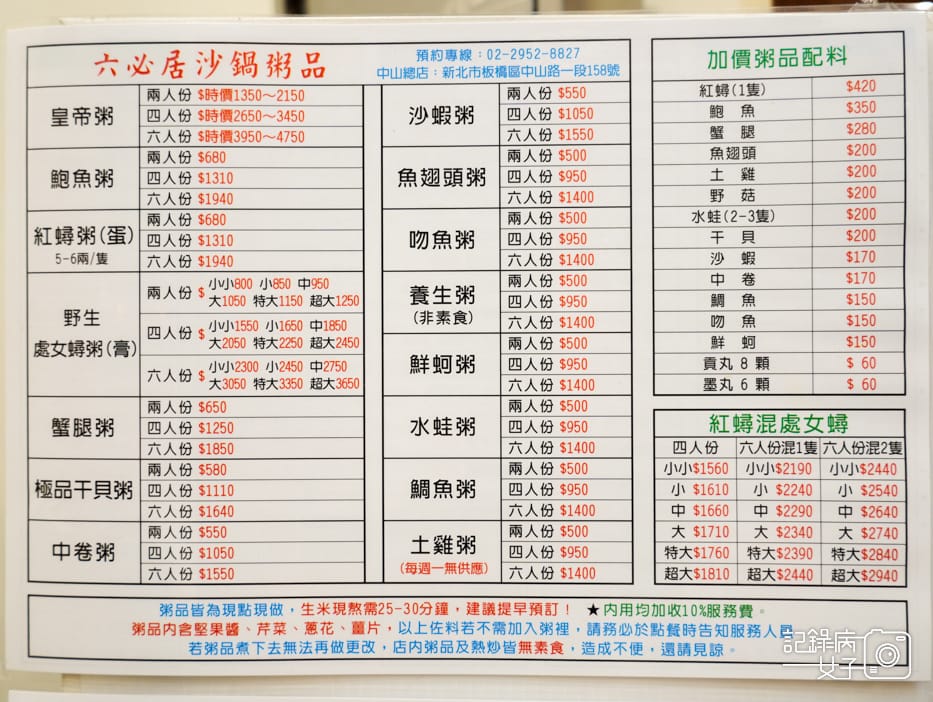 六必居沙鍋粥品
預約專線：02-2952-8827
中山總店：新北市板橋區中山路一段158號
皇帝粥
兩人份 $時價1350～2150
四人份 $時價2650～3450
六人份 $時價3950～4750
鮑魚粥
兩人份 $680
四人份 $1310
六人份 $1940
紅蟳粥(蛋)
5-6兩/隻
兩人份 $680
四人份 $1310
六人份 $1940
野生
處女蟳粥(膏)
兩人份 $ 小小800 小850 中950
大1050 特大1150 超大1250
四人份 $ 小小1550 小1650 中1850
大2050 特大2250 超大2450
六人份 $ 小小2300 小2450 中2750
大3050 特大3350 超大3650
蟹腿粥
兩人份 $650
四人份 $1250
六人份 $1850
極品干貝粥
兩人份 $580
四人份 $1110
六人份 $1640
中卷粥
兩人份 $550
四人份 $1050
六人份 $1550
沙蝦粥
兩人份 $550
四人份 $1050
六人份 $1550
魚翅頭粥
兩人份 $500
四人份 $950
六人份 $1400
吻魚粥
兩人份 $500
四人份 $950
六人份 $1400
養生粥
(非素食)
兩人份 $500
四人份 $950
六人份 $1400
鮮蚵粥
兩人份 $500
四人份 $950
六人份 $1400
水蛙粥
兩人份 $500
四人份 $950
六人份 $1400
鯛魚粥
兩人份 $500
四人份 $950
六人份 $1400
土雞粥
(每週一無供應)
兩人份 $500
四人份 $950
六人份 $1400
加價粥品配料
紅蟳(1隻) $420
鮑魚 $350
蟹腿 $280
魚翅頭 $200
土雞 $200
野菇 $200
水蛙(2-3隻) $200
干貝 $200
沙蝦 $170
中卷 $170
鯛魚 $150
吻魚 $150
鮮蚵 $150
貢丸8顆 $ 60
墨丸6顆 $ 60
紅蟳混處女蟳
四人份 六人份混1隻 六人份混2隻
小小$1560 小小$2190 小小$2440
小 $1610 小 $2240 小 $2540
中 $1660 中 $2290 中 $2640
大 $1710 大 $2340 大 $2740
特大$1760 特大$2390 特大$2840
超大$1810 超大$2440 超大$2940
粥品皆為現點現做，生米現熬需25-30分鐘，建議提早預訂！ ★內用均加收10%服務費。
粥品內含堅果醬、芹菜、蔥花、薑片，以上佐料若不需加入粥裡，請務必於點餐時告知服務人員
若粥品煮下去無法再做更改，店內粥品及熱炒皆無素食，造成不便，還請見諒。
記錄病
女子